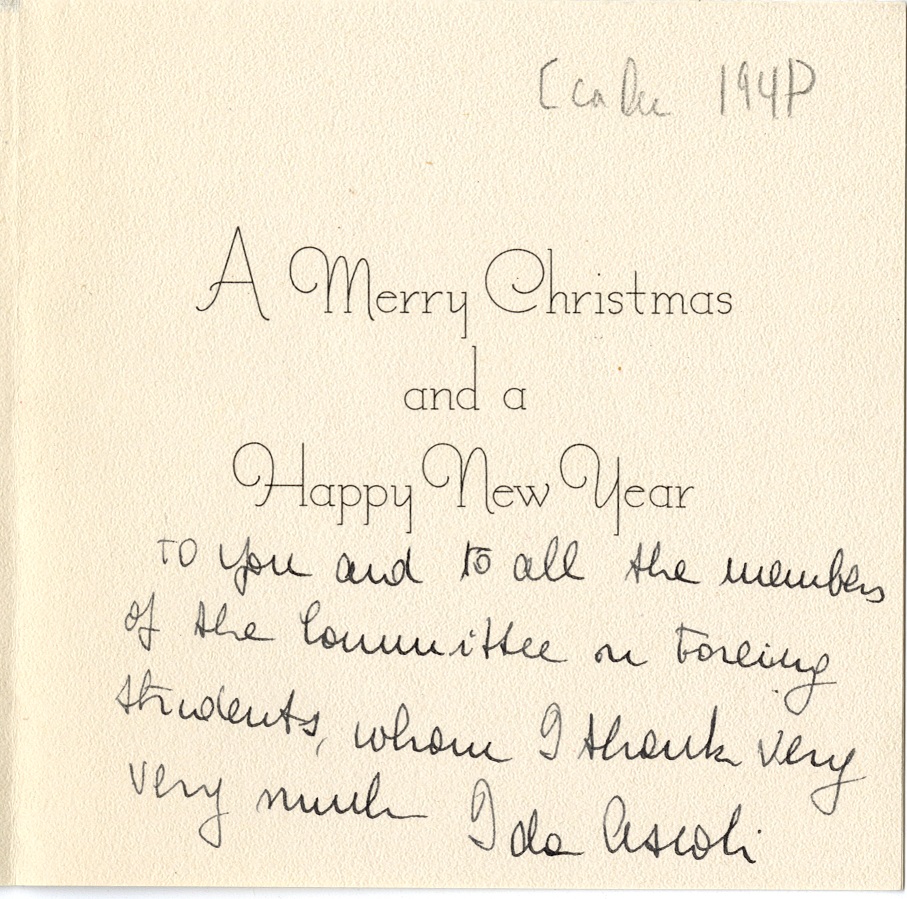 A Merry Christmas
and a
Happy New Year
to you and to all the members
of the Committee on Foreing
students, whom I thank very
very much Ida Ascoli